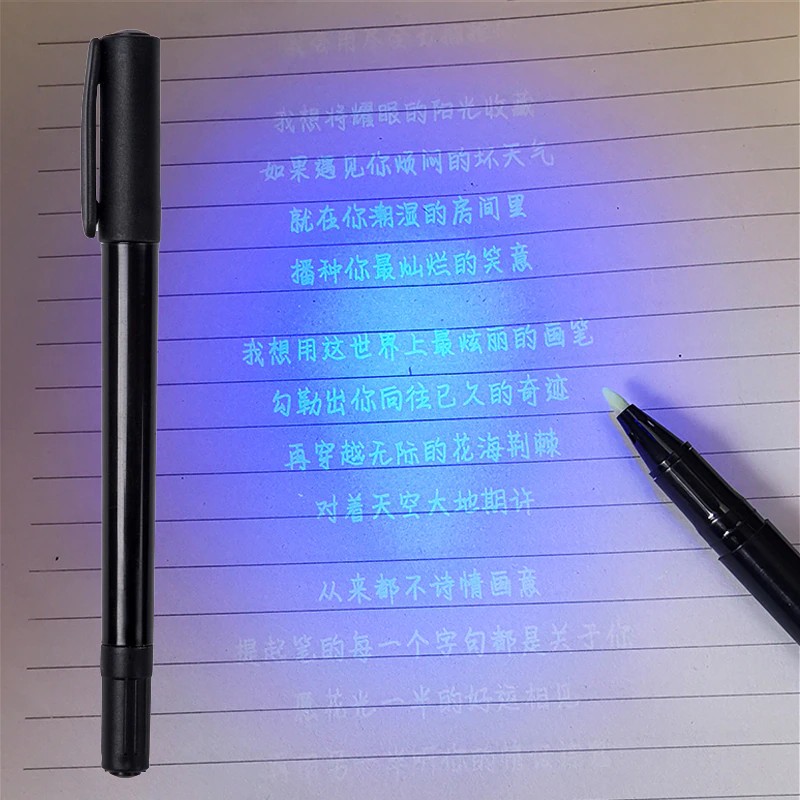 我想将耀眼的阳光收藏
如果遇见你烦闷的坏天气
就在你潮湿的房间里
播种你最灿烂的笑意
我想用这世界上最炫丽的画笔
勾勒出你向往已久的奇迹
再穿越无际的花海荆棘
对着天空大地期许
从来都不诗情画意
提起笔的每一个字句都是关于你
愿花光一半的好运相见